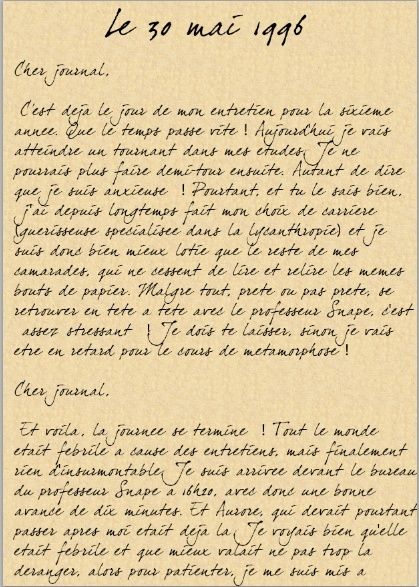 Le 30 mai 1996
Cher journal,
C'est deja le jour de mon entretien pour la sixieme
annee. Que le temps passe vite ! Aujourd'hui, je vais
atteindre un tournant dans mes etudes. Je ne
pourrais plus faire demi-tour ensuite. Autant de dire
que je suis anxieuse ! Pourtant, et tu le sais bien,
j'ai depuis longtemps fait mon choix de carriere
(guerisseuse specialisee dans la lycanthropie) et je
suis donc bien mieux lotie que le reste de mes
camarades, qui ne cessent de lire et relire les memes
bouts de papier. Malgre tout, prete ou pas prete, se
retrouver en tete a tete avec le professeur Snape, c'est
assez stressant ! Je dois te laisser, sinon je vais
etre en retard pour le cours de metamorphose !
Cher journal,
Et voila, la journee se termine ! Tout le monde
etait febrile a cause des entretiens, mais finalement
rien d'insurmontable. Je suis arrivee devant le bureau
du professeur Snape a 16h20, avec donc une bonne
avance de dix minutes. Et Aurore, qui devait pourtant
passer apres moi etait deja la. Je voyais bien qu'elle
etait febrile et que mieux valait ne pas trop la
deranger, alors pour patienter, je me suis mis a